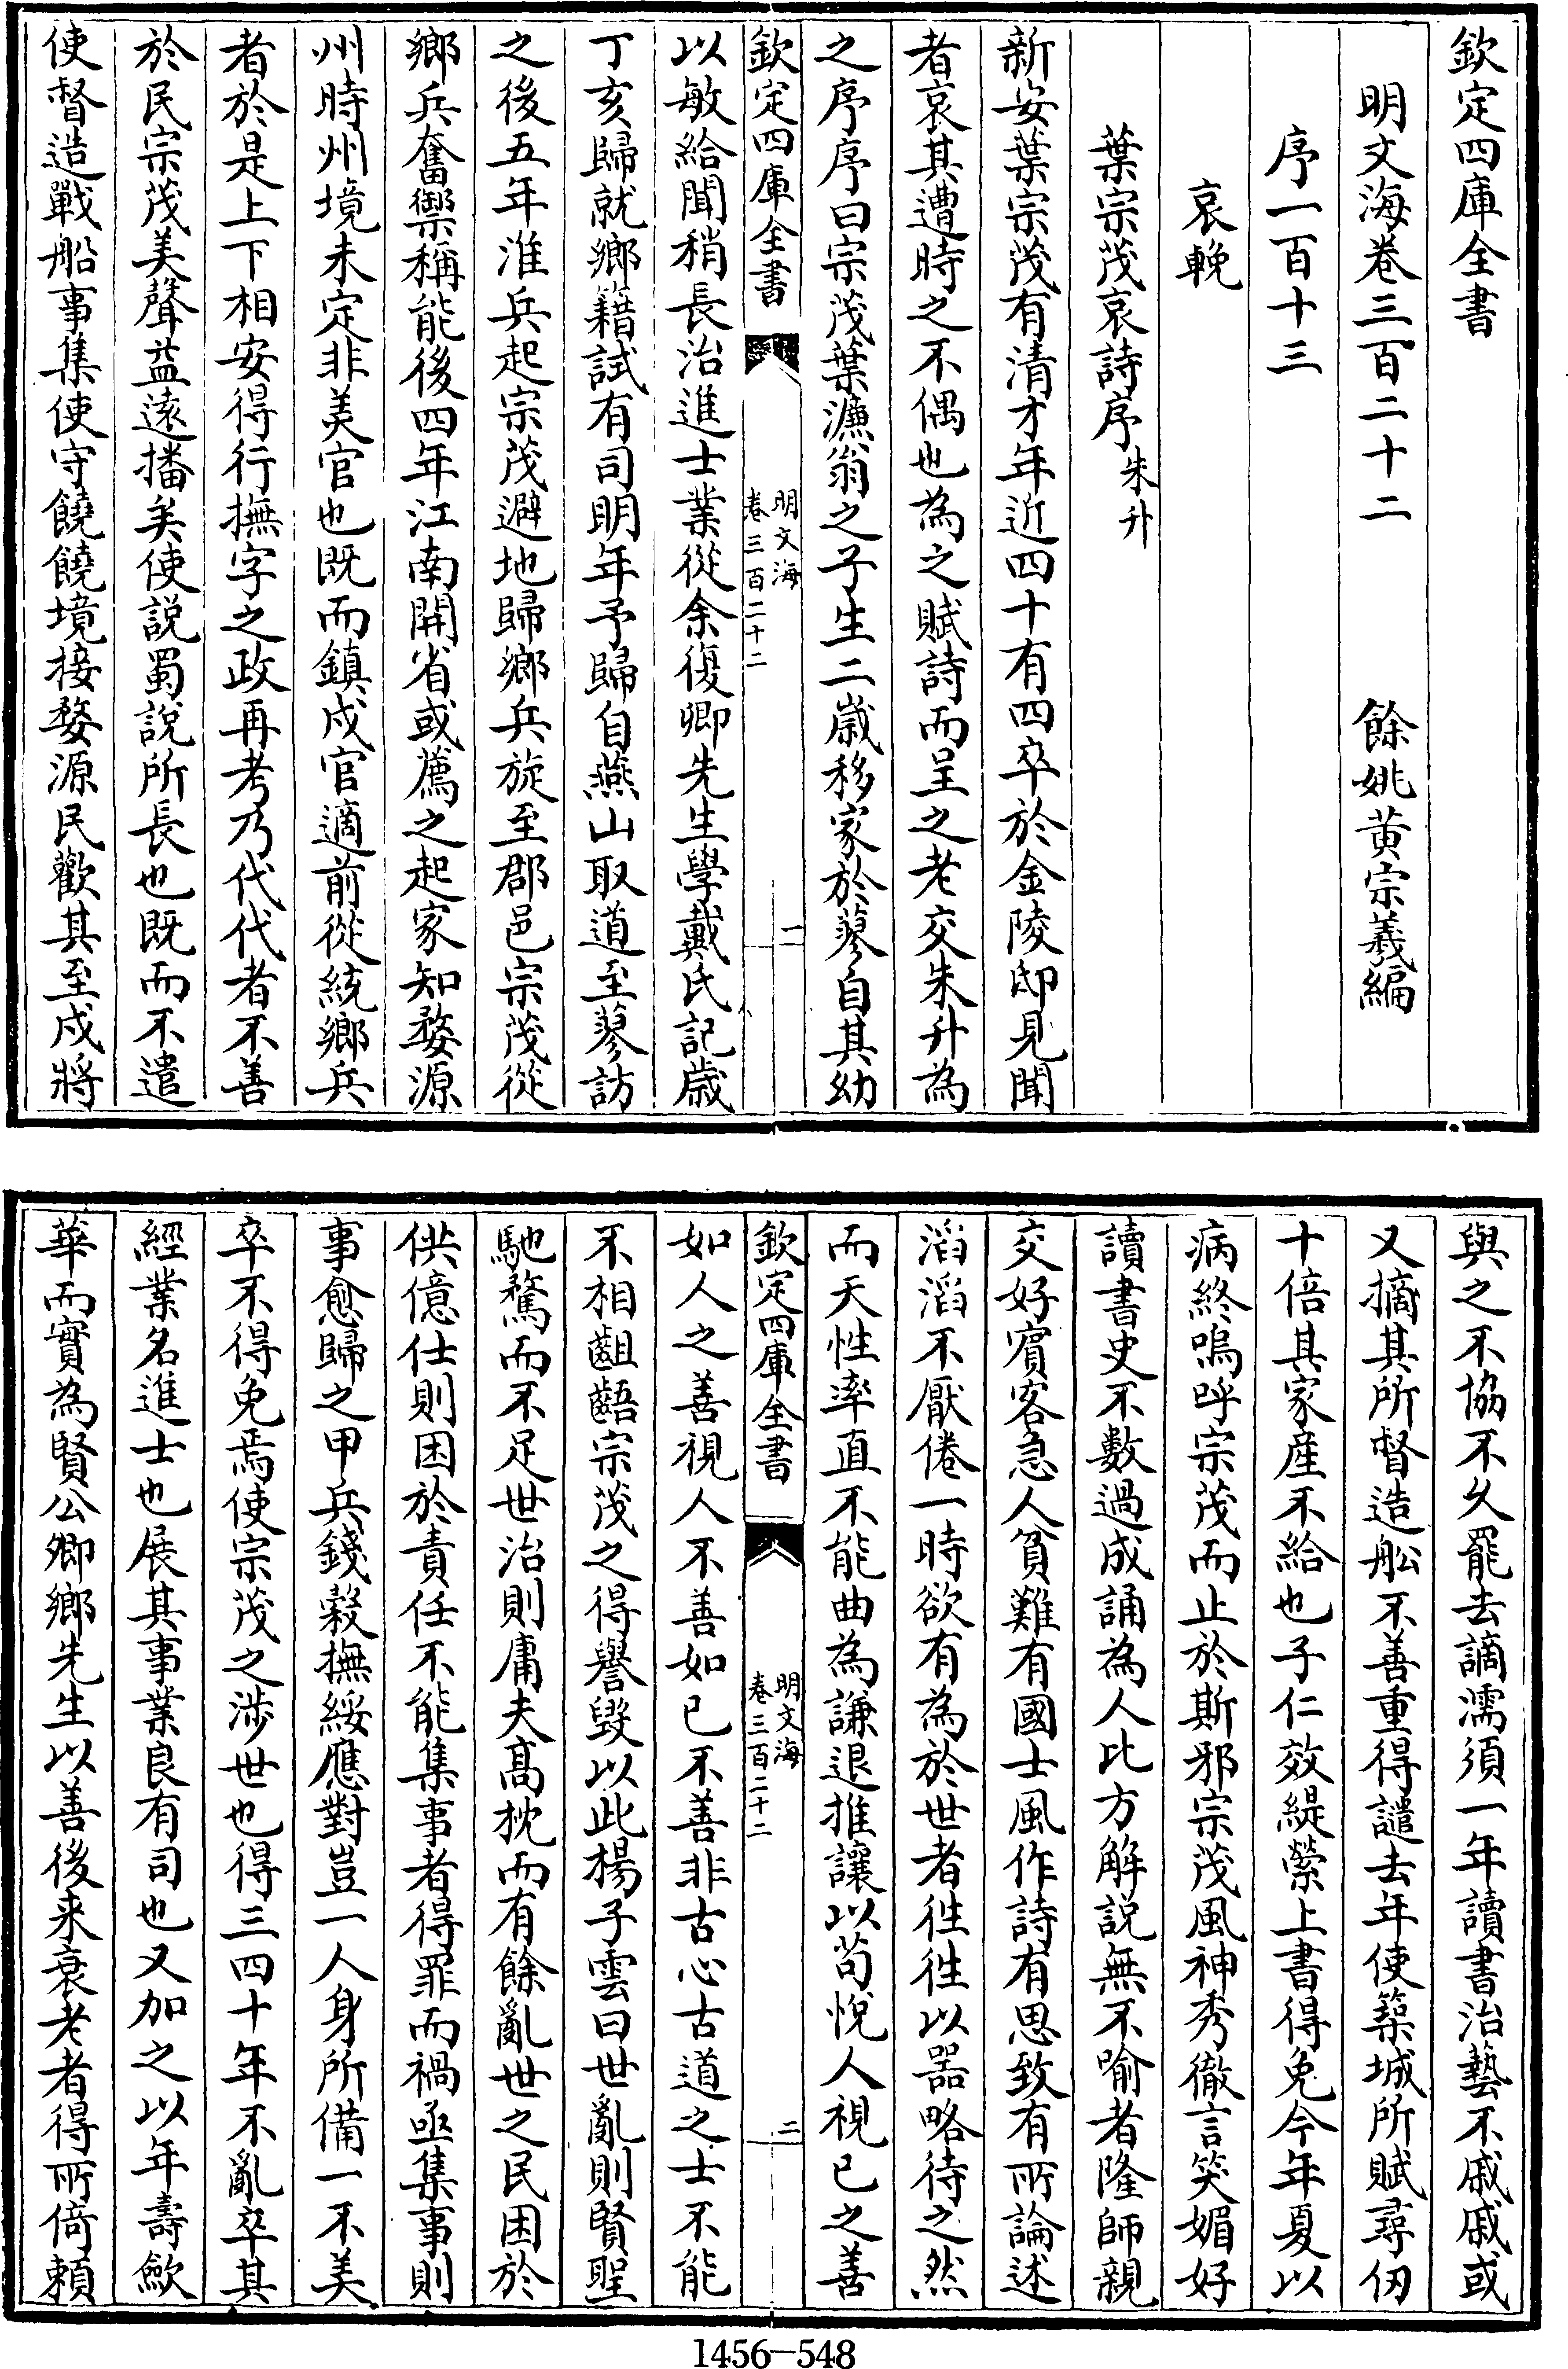 欽定四庫全書
明文海卷三百二十二　　　餘姚黃宗羲編
序一百十三
哀輓
葉宗茂哀詩序朱升
新安葉宗茂有清才年近四十有四卒於金陵邸見聞
者哀其遭時之不偶也為之賦詩而呈之老交朱升為
之序序曰宗茂葉濂翁之子生二歲移家於蓼自其幼
欽定四庫全書
明文海
卷三百二十二
一
以敏給聞稍長治進士業從余復卿先生學戴氏記歲
丁亥歸就鄉籍試有司明年予歸自燕山取道至蓼訪
之後五年淮兵起宗茂避地歸鄉兵旋至郡邑宗茂從
鄉兵奮禦稱能後四年江南開省或薦之起家知婺源
州時州境未定非美官也既而鎮戍官適前從統鄉兵
者於是上下相安得行撫字之政再考乃代代者不善
於民宗茂美聲益遠播矣使説蜀說所長也既而不遣
使督造戰船事集使守饒饒境接婺源民歡其至戍將
與之不協不久罷去謫濡須一年讀書治藝不戚戚或
又摘其所督造舩不善重得譴去年使築城所賦尋仞
十倍其家産不給也子仁效緹縈上書得免今年夏以
病終嗚呼宗茂而止於斯邪宗茂風神秀徹言笑媚好
讀書史不數過成誦為人比方解説無不喻者隆師親
交好賓客急人貧難有國士風作詩有思致有所論述
滔滔不厭倦一時欲有為於世者徃徃以器略待之然
而天性率直不能曲為謙退推讓以苟悅人視已之善
欽定四庫全書
明文海
卷三百二十二
二
如人之善視人不善如已不善非古心古道之士不能
不相齟齬宗茂之得譽毀以此楊子雲曰世亂則賢聖
馳騖而不足世治則庸夫髙枕而有餘亂世之民困於
供億仕則困於責任不能集事者得罪而禍亟集事則
事愈歸之甲兵錢糓撫綏應對豈一人身所備一不美
卒不得免焉使宗茂之涉世也得三四十年不亂卒其
經業名進士也展其事業良有司也又加之以年壽歛
華而實為賢公卿鄉先生以善後来衰老者得所倚賴
1456-548